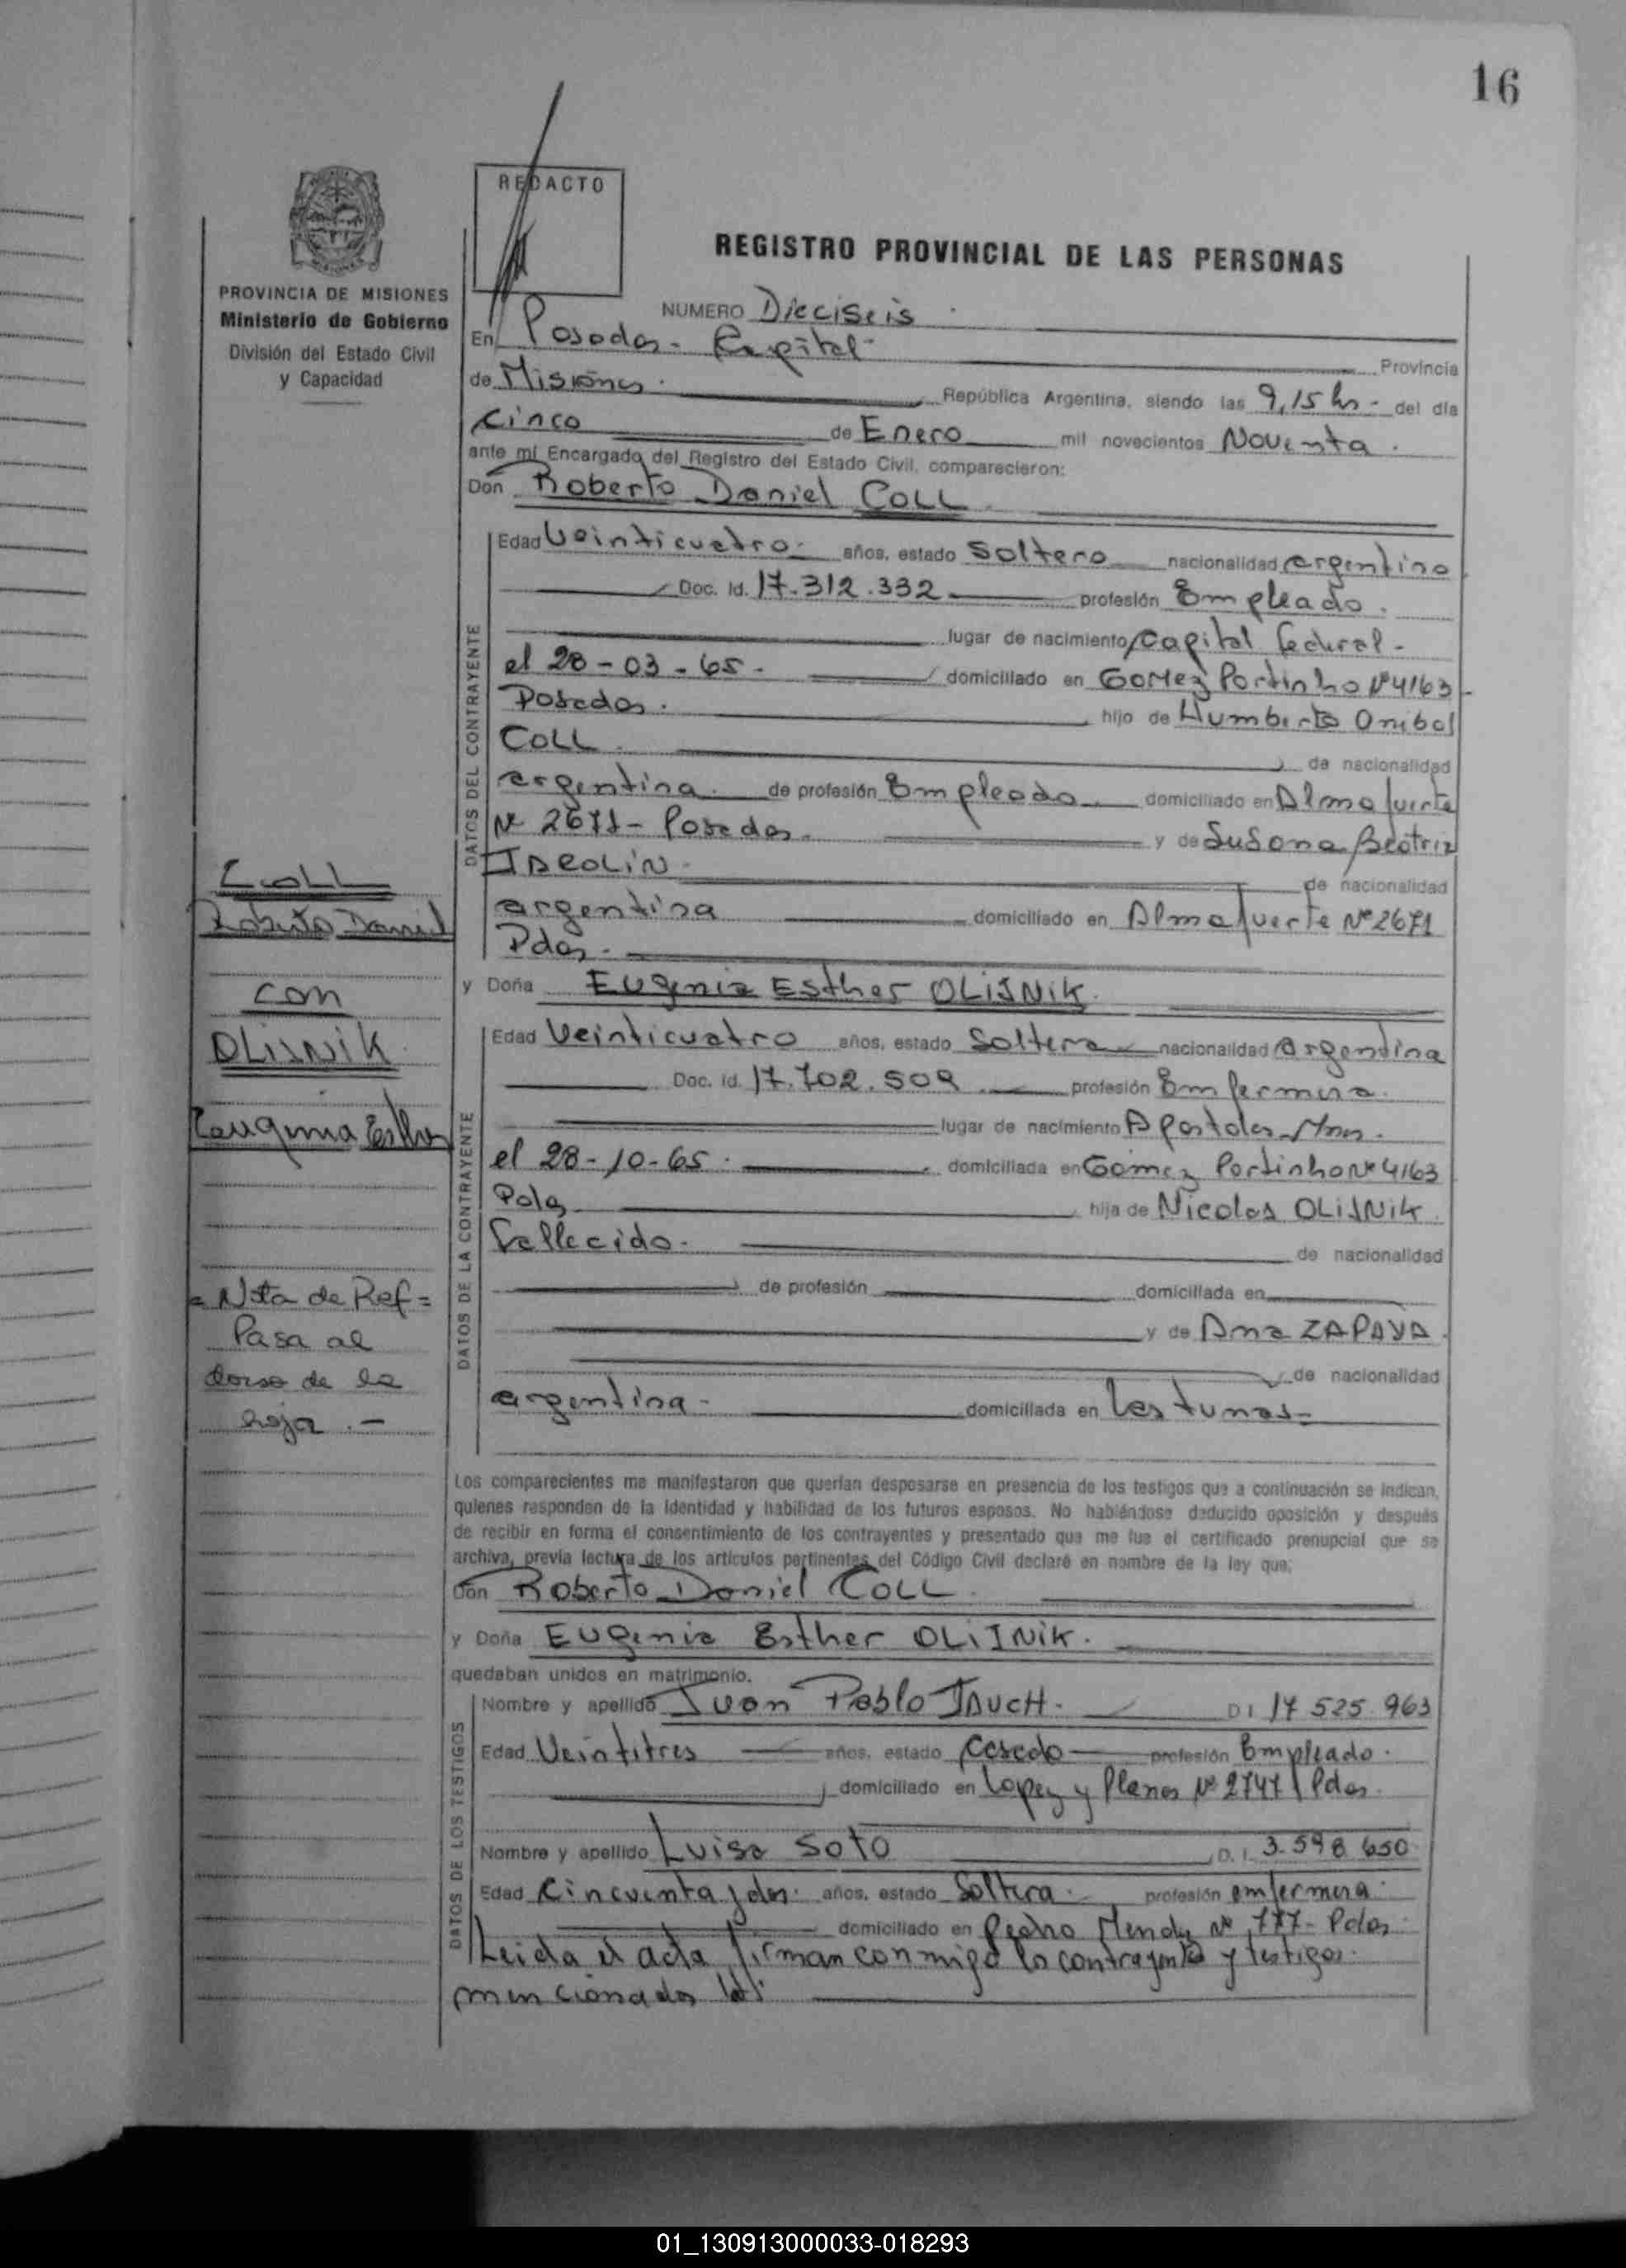 16
REDACTO
REGISTRO PROVINCIAL DE LAS PERSONAS
PROVINCIA DE MISIONES
Ministerio de Gobierno
División del Estado Civil
y Capacidad
NUMERO Dieciseis
En Posadas - Capital - Provincia
de Misiones. República Argentina, siendo las 9,15 hs - del día
Cinco de Enero mil novecientos Noventa.
ante mí Encargado del Registro del Estado Civil, comparecieron:
Don Roberto Daniel COLL
DATOS DEL CONTRAYENTE
Edad Veinticuatro años, estado Soltero nacionalidad argentino
Doc. Id. 17.312.332 profesión Empleado.
lugar de nacimiento Capital Federal -
el 28-03-65 - domiciliado en Gomez Portinho Nº 4163
Posadas. hijo de Humberto Anibal
COLL. de nacionalidad
argentina. de profesión Empleado domiciliado en Almafuerte
Nº 2671 - Posadas. y de Susana Beatriz
de nacionalidad
argentina domiciliado en Almafuerte Nº 2671
Pdas.
COLL
Roberto Daniel
con
OLIJNIK
Eugenia Esther
- Nota de Ref =
Pasa al
dorso de la
hoja . -
y Doña Eugenia Esther OLIJNIK.
DATOS DE LA CONTRAYENTE
Edad Veinticuatro años, estado Soltera nacionalidad Argentina
Doc. Id. 17.702.509 profesión Enfermera.
lugar de nacimiento Apostoles - Mnes.
el 28-10-65. domiciliada en Gomez Portinho Nº 4163
Pdas hija de Nicolas OLIJNIK.
Fallecido. de nacionalidad
de profesión domiciliada en
y de Ana ZAPAYA.
de nacionalidad
argentina - domiciliada en Las tunas -
Los comparecientes me manifestaron que querían desposarse en presencia de los testigos que a continuación se indican,
quienes responden de la identidad y habilidad de los futuros esposos. No habiéndose deducido oposición y después
de recibir en forma el consentimiento de los contrayentes y presentado que me fue el certificado prenupcial que se
archiva, previa lectura de los artículos pertinentes del Código Civil declaré en nombre de la ley que;
Don Roberto Daniel COLL.
y Doña Eugenia Esther OLIJNIK.
quedaban unidos en matrimonio.
DATOS DE LOS TESTIGOS
Nombre y apellido Juan Pablo JAUCH. D I 17 525 963
Edad Veintitres años, estado Casado profesión Empleado.
domiciliado en Lopez y Planes Nº 2747 Pdas.
Nombre y apellido Luisa Soto D. I. 3.598 650
Edad Cincuenta y dos. años, estado Soltera. profesión enfermera.
domiciliado en Pedro Mendez Nº 777 - Pdas.
Leida el acta firman conmigo los contrayentes y testigos
mencionados
01_130913000033-018293